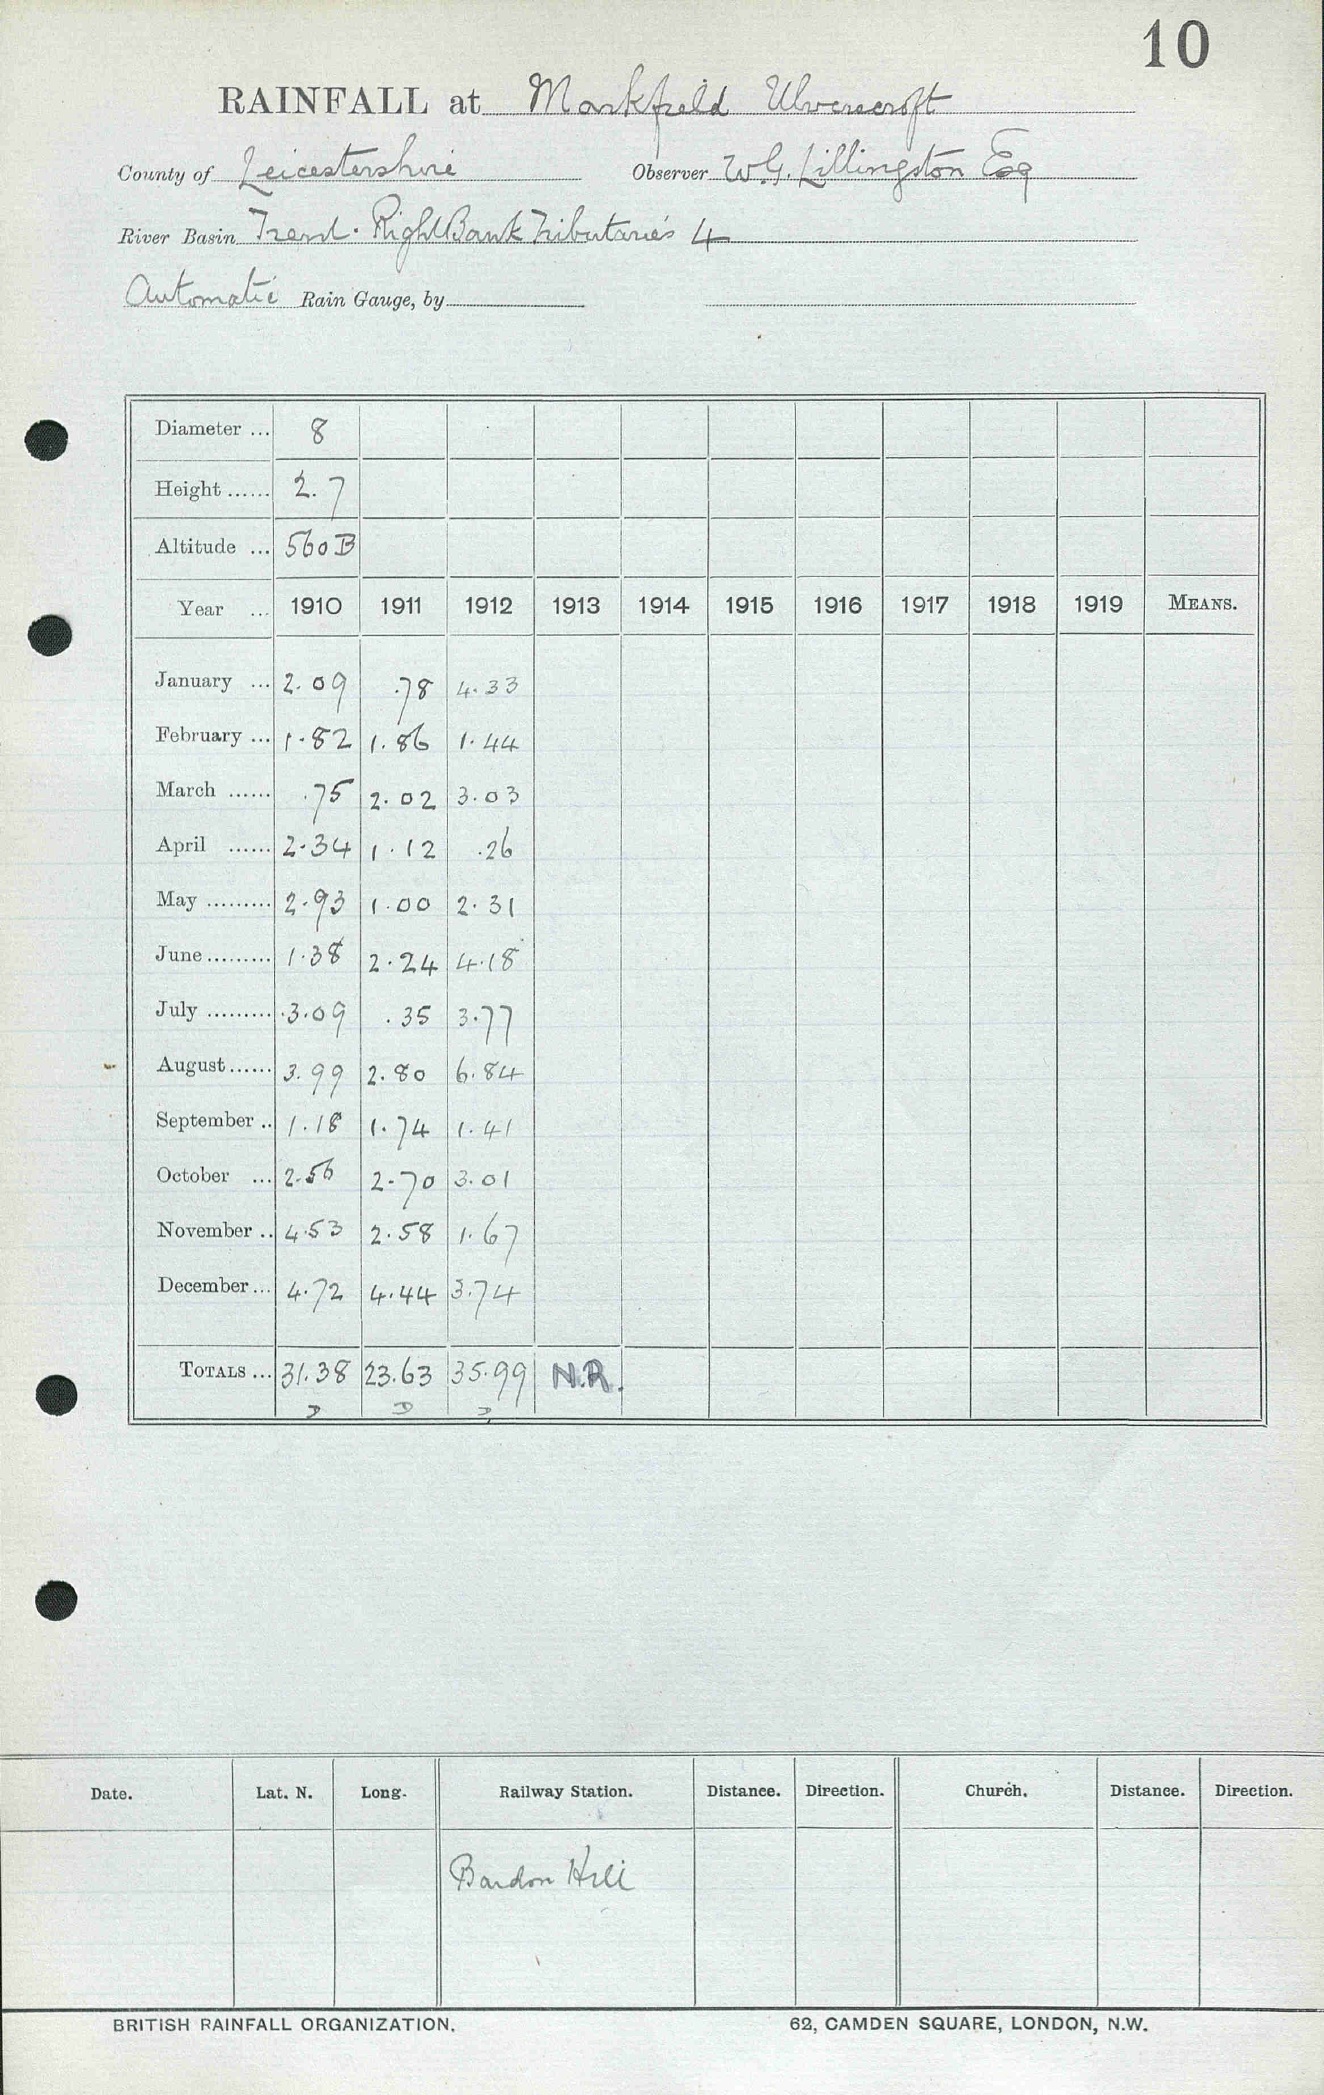 10
RAINFALL at Markfield Ulverscroft
County of Leicestershire Observer W.G. Lillingston Esq
River Basin Trent. Right Bank Tributaries 4
Automatic Rain Gauge, by
Diameter ... 8
Height ...... 2.7
Altitude ... 560 B
Year ... 1910 1911 1912 1913 1914 1915 1916 1917 1918 1919 MEANS.
January ... 2.09 .78 4.33
February ... 1.82 1.86 1.44
March ...... .75 2.02 3.03
April ...... 2.34 1.12 .26
May ......... 2.93 1.00 2.31
June ......... 1.38 2.24 4.18
July ......... 3.09 .35 3.77
August ...... 3.99 2.80 6.84
September .. 1.18 1.74 1.41
October ... 2.56 2.70 3.01
November .. 4.53 2.58 1.67
December ... 4.72 4.44 3.74
TOTALS ... 31.38 23.63 35.99 N.R.
D D D
Date. Lat. N. Long. Railway Station. Distance. Direction. Church. Distance. Direction.
Bardon Hill
BRITISH RAINFALL ORGANIZATION. 62, CAMDEN SQUARE, LONDON, N.W.